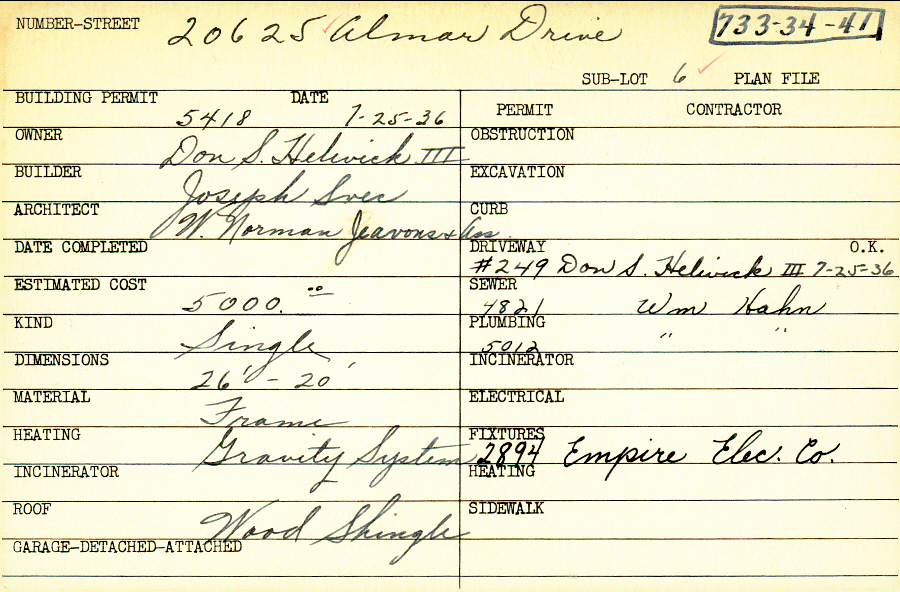 NUMBER-STREET 20625 Almar Drive 733-34-41
SUB-LOT 6 PLAN FILE
BUILDING PERMIT 5418 DATE 7-25-36
OWNER Don S. Helwick III
BUILDER Joseph Svec
ARCHITECT W. Norman Jeavons & Ass.
DATE COMPLETED
ESTIMATED COST 5000.00
KIND Single
DIMENSIONS 26' - 20'
MATERIAL Frame
HEATING Gravity System
INCINERATOR
ROOF Wood Shingle
GARAGE-DETACHED-ATTACHED
PERMIT CONTRACTOR
OBSTRUCTION
EXCAVATION
CURB
DRIVEWAY O.K.
#249 Don S. Helwick III 7-25-36
SEWER
4821 Wm Hahn
PLUMBING
5012 " "
INCINERATOR
ELECTRICAL
FIXTURES
2894 Empire Elec. Co.
HEATING
SIDEWALK